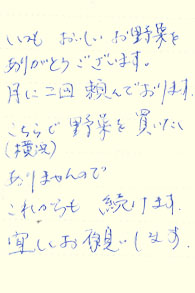 いつも おいしい お野菜を
ありがとうございます。
月に二回 頼んでおります
こちらで 野菜を 買いたい
(横浜)
ありませんので
これからも 続けます.
宜しくお願いします.